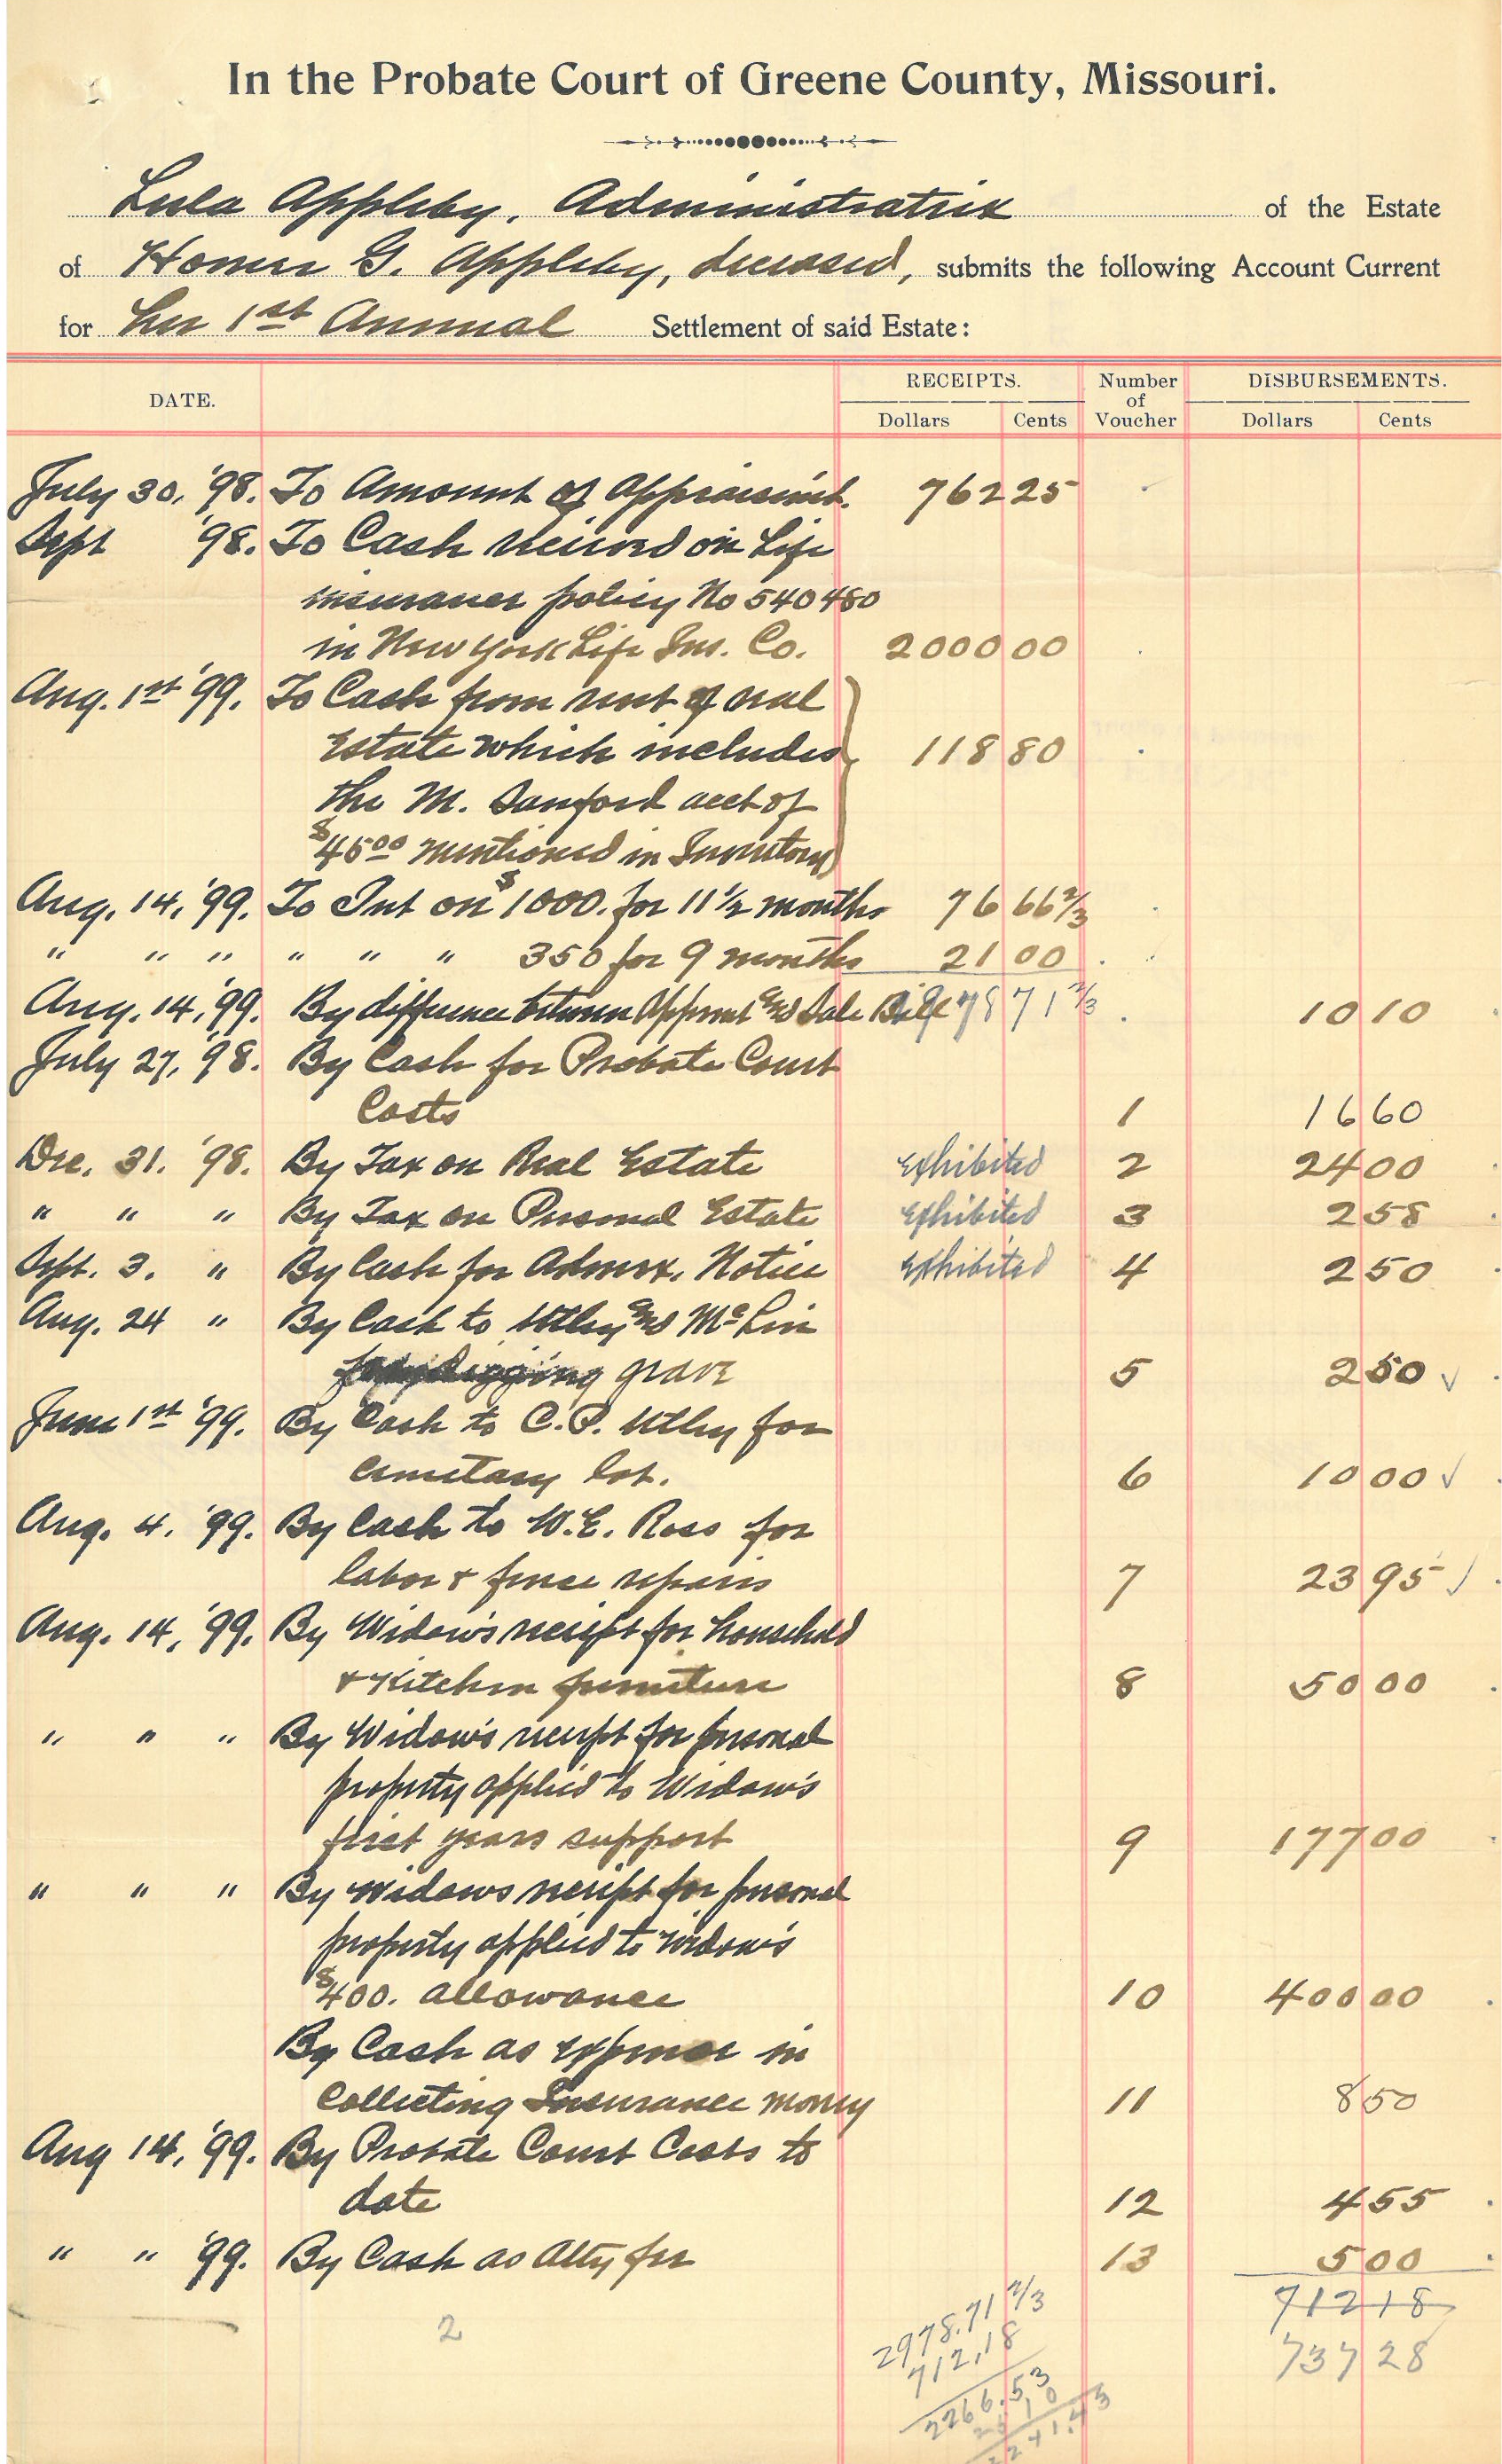 In the Probate Court of Greene County, Missouri.
Lula Appleby, Administratrix of the Estate
of Homer G. Appleby, deceased, submits the following Account Current
for her 1st Annual Settlement of said Estate:
DATE. RECEIPTS. Number of Voucher DISBURSEMENTS.
Dollars Cents Dollars Cents
July 30, '98. To Amount of Appraisemt. 762 25
Sept '98. To Cash received on Life
insurance policy No 540480
in New York Life Ins. Co. 2000 00
Aug. 1st '99. To Cash from rent of real
Estate which includes 118 80
the M. Sanford acct of
$45.00 mentioned in Inventory
Aug. 14, '99. To Int on $1000. for 11 1/2 months 76 66 2/3
" " " " " " 350 for 9 months 21 00
Aug. 14, '99. By difference between Apprmt and Sale Bill 2978 71 2/3 10 10
July 27, '98. By Cash for Probate Court
Costs 1 16 60
Dec. 31. '98. By Tax on Real Estate Exhibited 2 24 00
" " " By Tax on Personal Estate Exhibited 3 2 58
Sept. 3. " By Cash for Admrx. Notice Exhibited 4 2 50
Aug. 24 " By Cash to Utley and McLin
for digging grave 5 2 50 ✓
June 1st '99. By Cash to C.P. Utley for
cemetary lot. 6 10 00 ✓
Aug. 4. '99. By Cash to W.E. Ross for
labor & fence repairs 7 23 95 ✓
Aug. 14, '99. By Widow's receipt for household
& Kitchen furniture 8 50 00
" " " By Widow's receipt for personal
property applied to Widow's
first years support 9 177 00
" " " By widows receipt for personal
property applied to widow's
$400. allowance 10 400 00
By Cash as expense in
Collecting Insurance money 11 8 50
Aug 14, '99. By Probate Court Costs to
date 12 4 55
" " '99. By Cash as Atty fee 13 5 00
2978.71 2/3 712 18
2 712.18 737 28
2266.53
25 10
2241.43